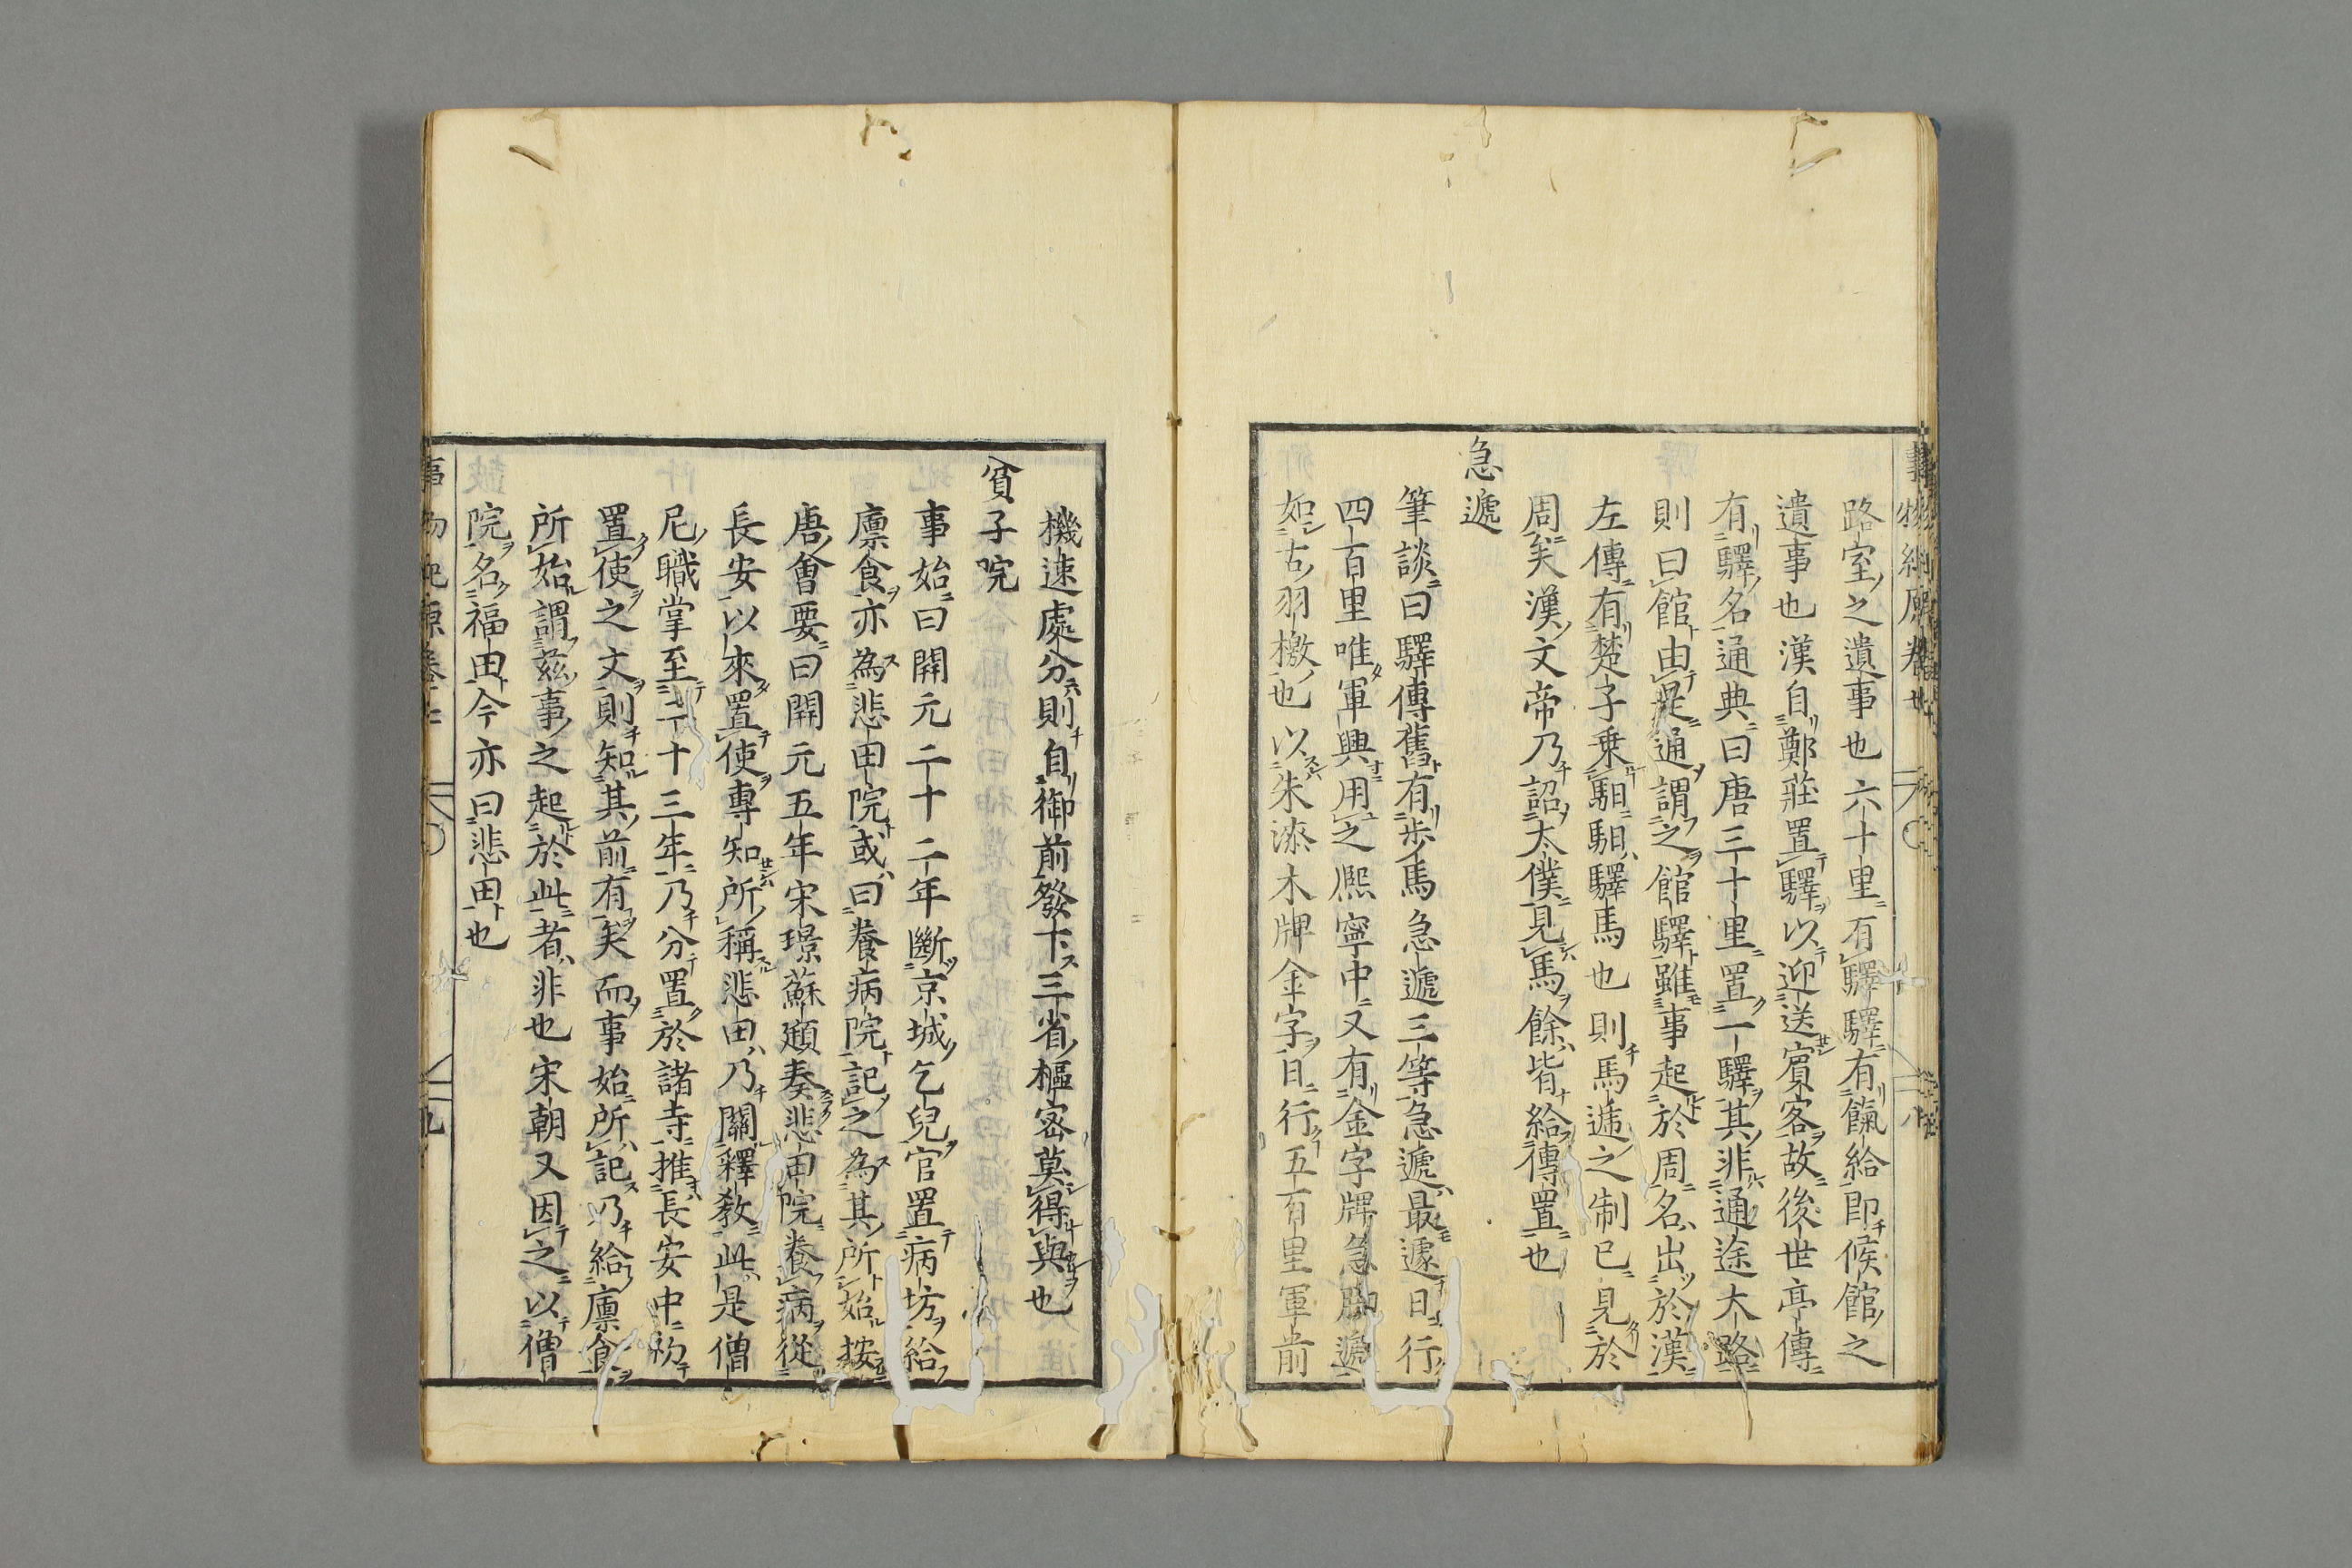 路室之遺事也六十里有驛驛有餼給即候館之
遺事也漢自鄭莊置驛以迎送賓客故後世亭傳
有驛名通典曰唐三十里置一驛其非通途大路
則曰館由是通謂之館驛雖事起於周名出於漢
左傳有楚子乗馹馹驛馬也則馬遞之制已見於
周矣漢文帝乃詔太僕見馬餘皆給傳置也
急遞
筆談曰驛傳舊有歩馬急遞三等急遞最遽日行
四百里唯軍興用之熈寧中又有金字牌急脚遞
如古羽檄也以朱漆木牌金字日行五百里軍前
機速處分則自御前發下三省樞密莫得與也
貧子院
事始曰開元二十二年斷京城乞兒官置病坊給
廩食亦為悲田院或曰養病院記之為其所始按
唐會要曰開元五年宋璟蘇頲奏悲田院養病從
長安以來置使專知所稱悲田乃關釋教此是僧
尼職掌至二十三年乃分置於諸寺推長安中初
置使之文則知其前有矣而事始所記乃給廩食
所始謂玆事之起於此者非也宋朝又因之以僧
院名福田今亦曰悲田也